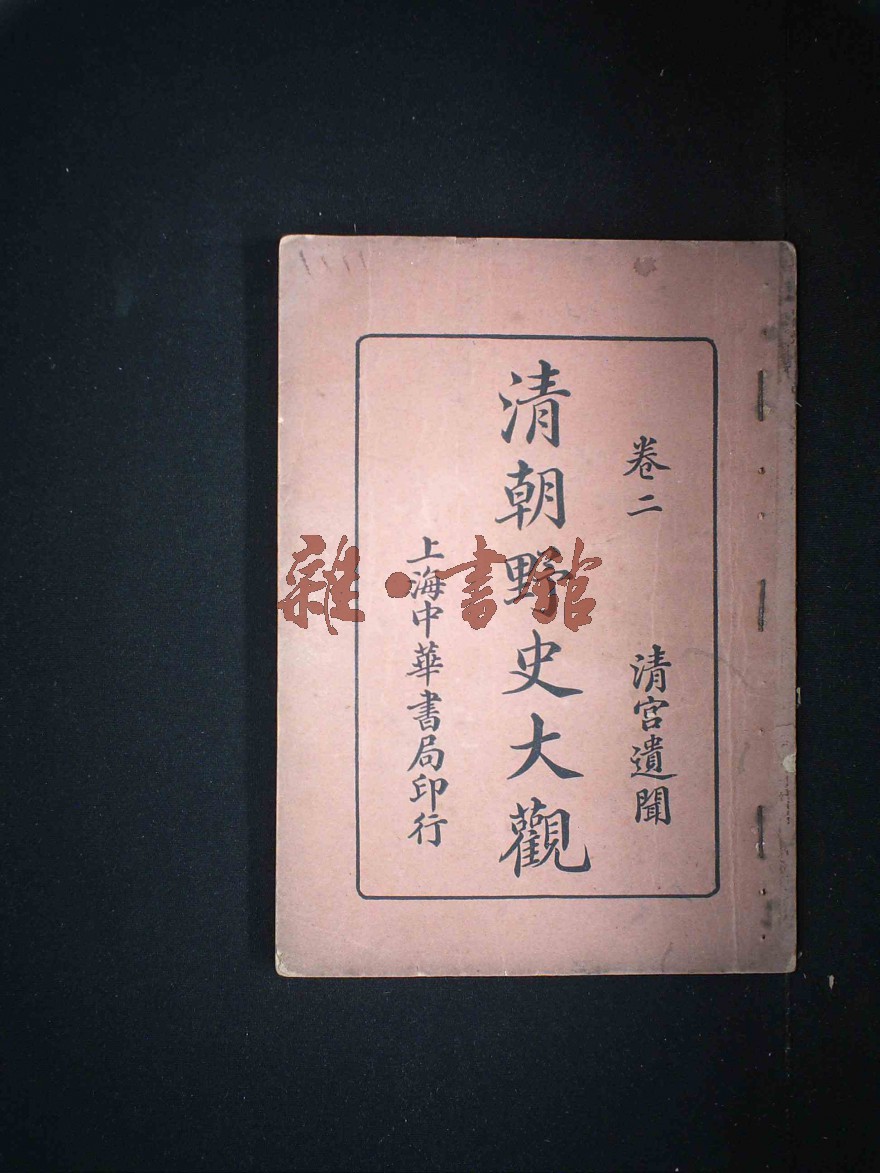 卷二　清宮遺聞
清朝野史大觀
上海中華書局印行
雜·書館